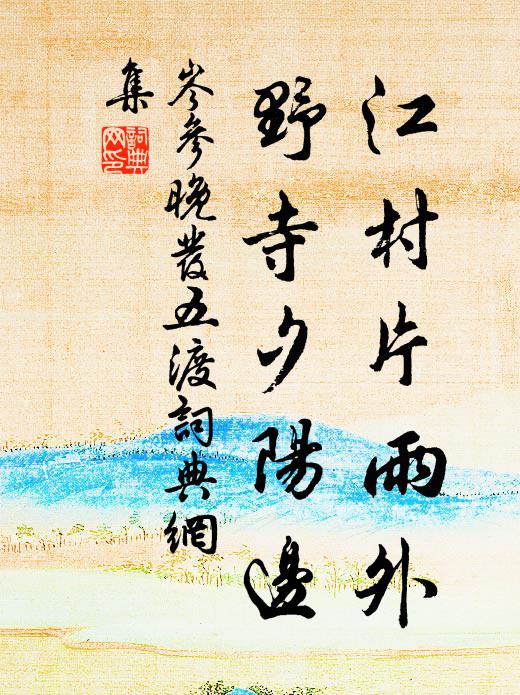 江村片雨外
野寺夕陽邊
岑參晚發五渡詞典網
集
詞典網印